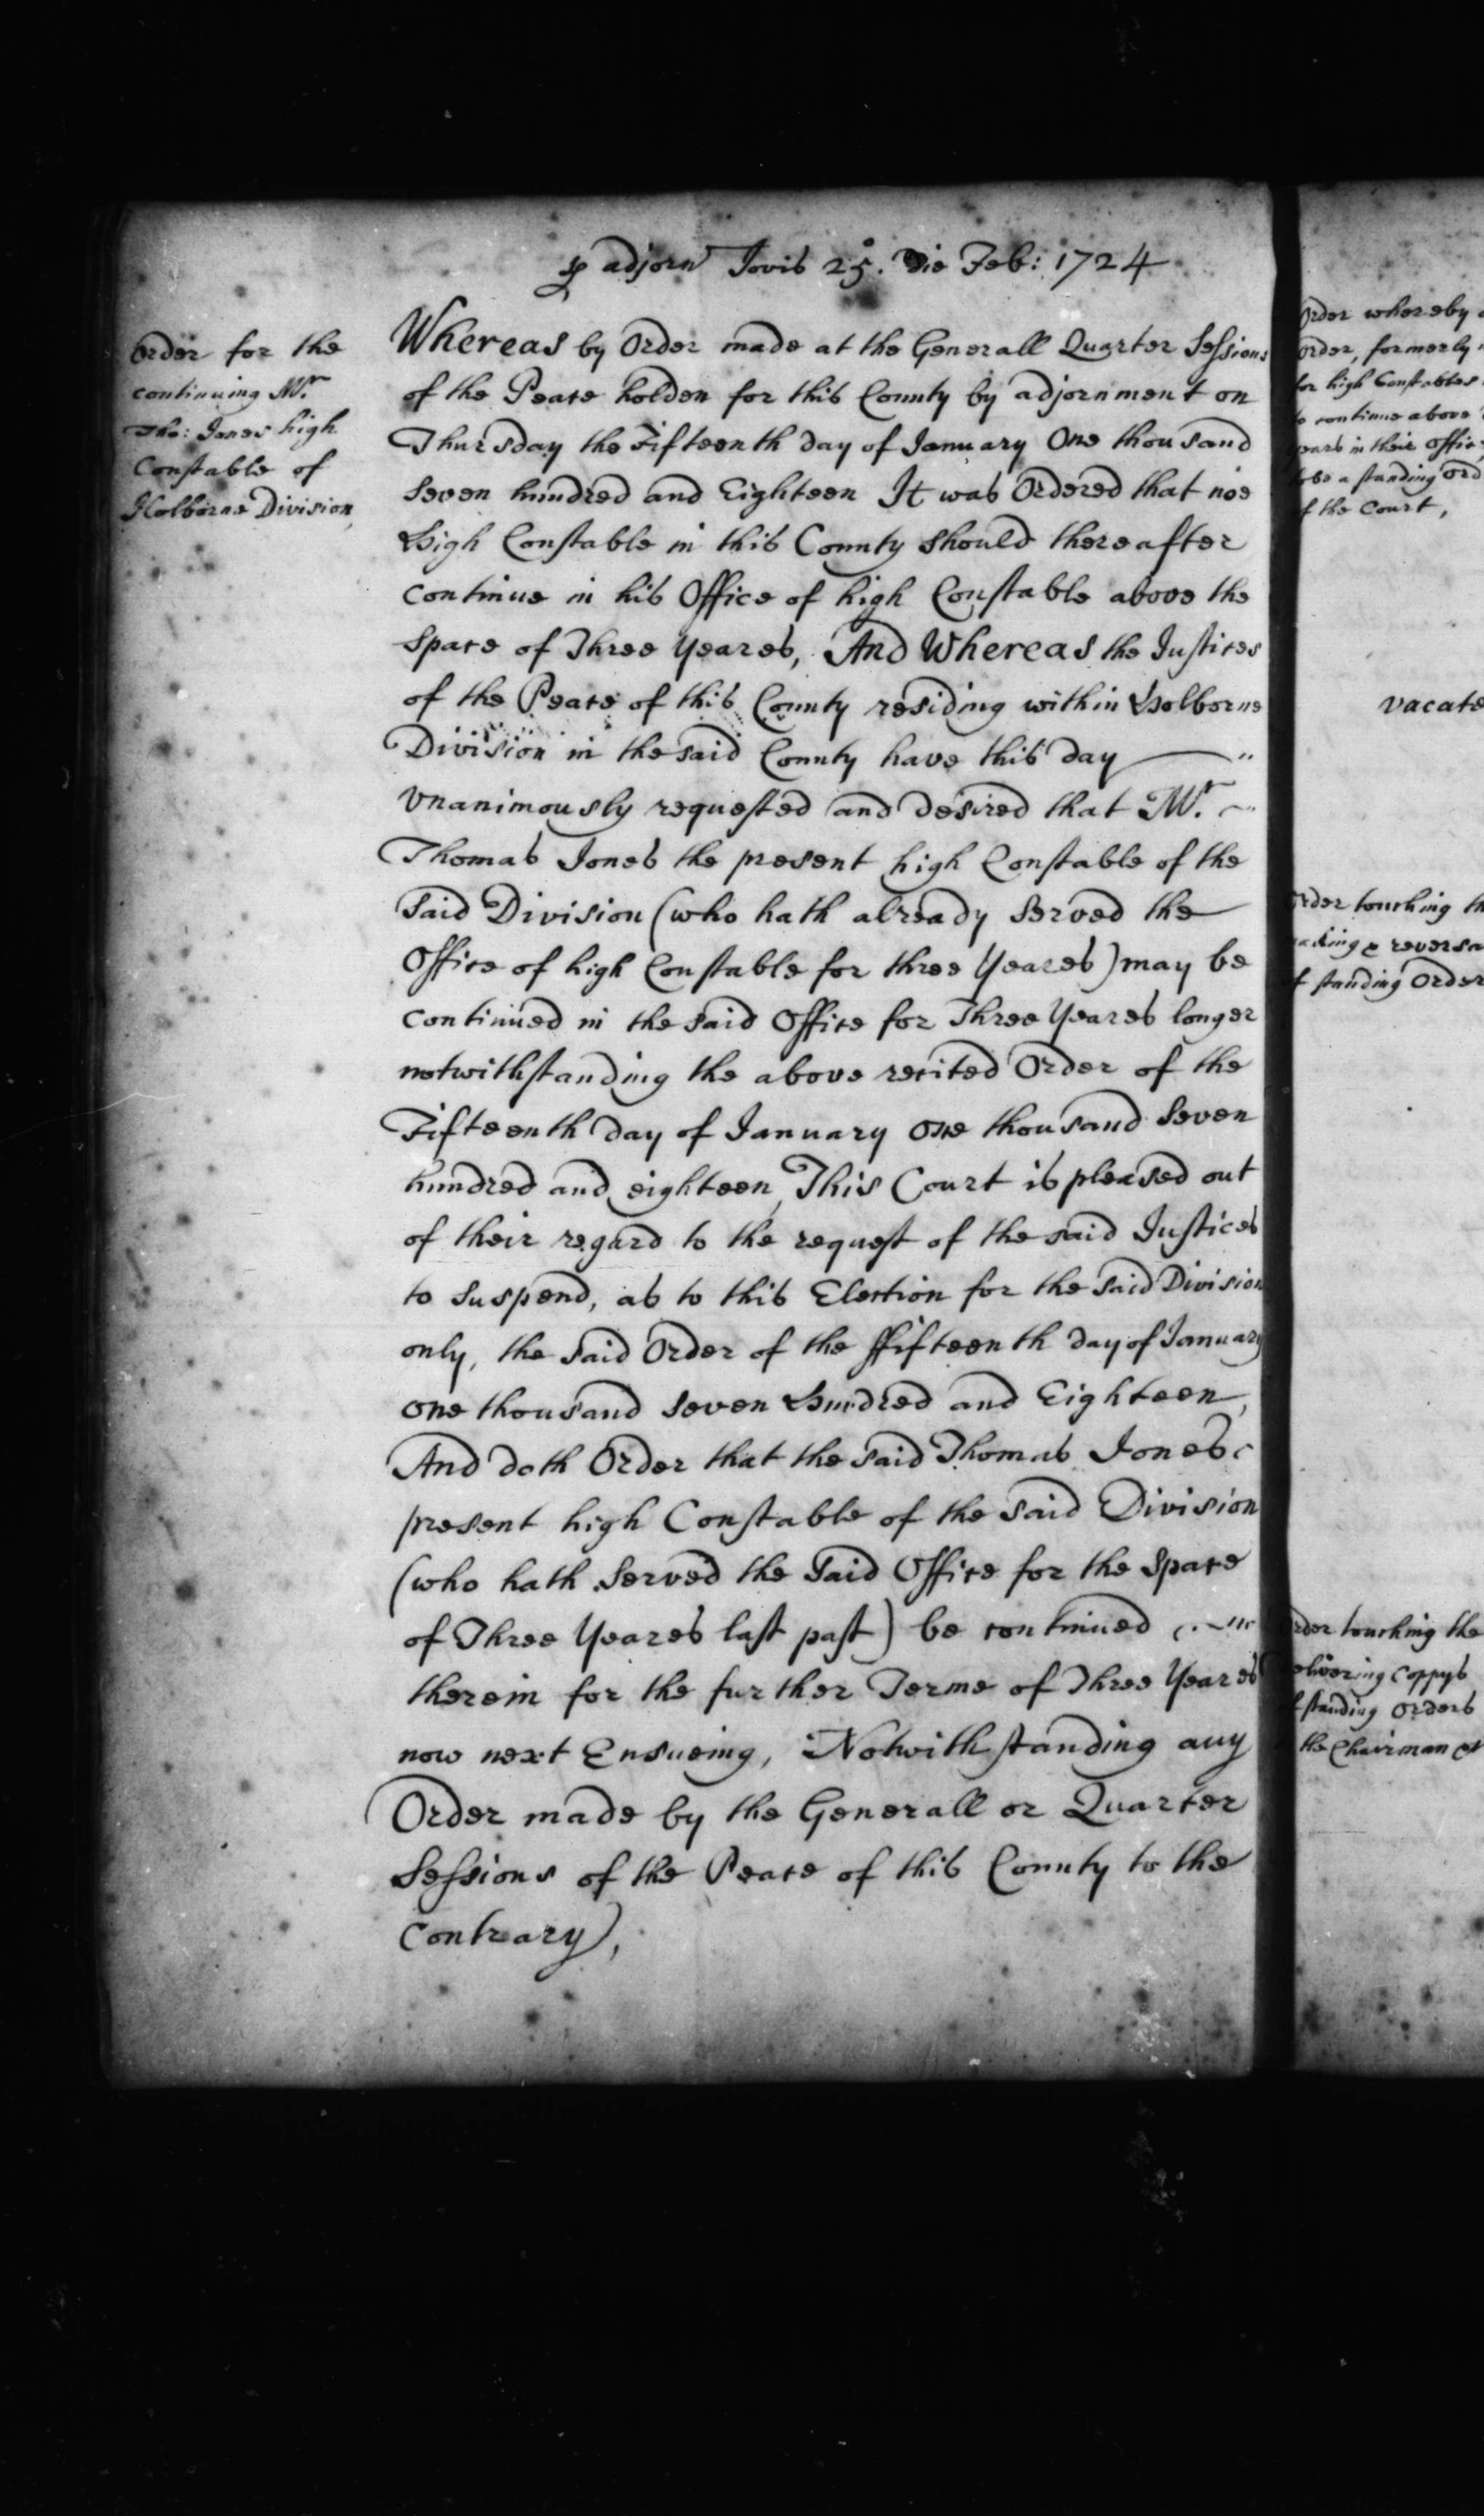 ꝑ adjorn Jovis 25o. Die Feb: 1724
Order for the
continuing Mr.
Tho: Jones high
Constable of
Holborne Division,
Whereas by Order made at the Generall Quarter Sessions
of the Peace holden for this County by adjornment on
Thursday the Fifteenth day of January One thousand
Seven hundred and Eighteen It was Ordered that noe
High Constable in this County should thereafter
continue in his Office of high Constable above the
Space of Three Yeares, And Whereas the Justices
of the Peace of this County residing within Holborne
Division in the said County have this day
Unanimously requested and desired that Mr.
Thomas Jones the present high Constable of the
said Division (who hath already Served the
Office of high Constable for three Yeares) may be
continued in the said Office for Three Yeares longer
notwithstanding the above recited Order of the
Fifteenth day of January One thousand Seven
hundred and eighteen, This Court is pleased out
of their regard to the request of the said Justices
to suspend, as to this Election for the said Division
only, the said Order of the ffifteenth day of January
One thousand seven Hundred and Eighteen,
And doth Order that the said Thomas Jones
present high Constable of the said Division
(who hath Served the said Office for the Space
of Three Yeares last past) be continued
therein for the further Terme of Three Yeares
now next Ensueing, Notwithstanding any
Order made by the Generall or Quarter
Sessions of the Peace of this County to the
Contrary),
Order whereby
Order, formerly
for high Constables
to continue above
years in their Office
to be a standing Ord
of the Court,
vacate
Order touching th
reversa
of standing Order
Order touching the
delivering Coppys
of standing Orders
the Chairman